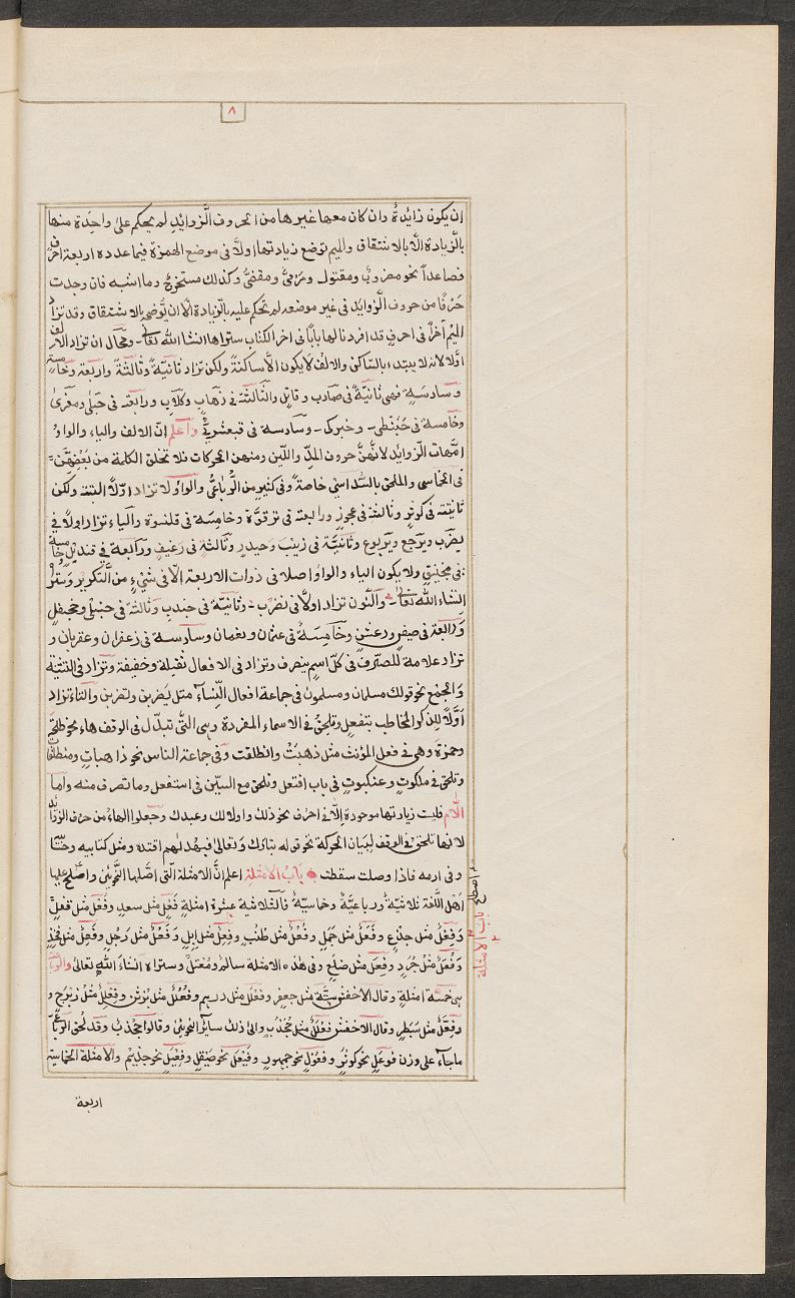 ٨
ان يكون زائدة وان كان معها غيرها من الحروف الزوائد لم يحكم على واحدة منها
بالزيادة الا بالاشتقاق والميم توضع زيادتها اولا في موضع الهمزة فيما عدده اربعة احرف
فصاعدا نحو مضروب ومقتول ومرمى ومقضى وكذلك مستخرج وما اشبه فان وجدت
حرفا من حروف الزوائد في غير موضعه لم تحكم عليه بالزيادة الا ان يوضحه الاشتقاق وقد تزاد
الميم آخرا في احرف قد افردنا لها بابا في اخر الكتاب ستراها انشا الله تعالى ومحال ان تزاد الالف
اولا لانه لا يبتدء بالساكن والالف لا يكون الا ساكنة ولكن تزاد ثانية وثالثة واربعة وخامسة
وسادسة فهى ثانية في ضارب وقاتل والثالثة في ذهاب وكلاب ورابعة في حبلى ومعزى
وخامسة في حبنطى وسادسة في قبعثرى واعلم ان الالف والياء والواو
امهات الزوائد لانهن حروف المد واللين ومنهن الحركات فلا تخلق الكلمة من بعضهن
في الخماسى والملحق بالسداسى خاصة وفى كثير من الرباعى والواو لا تزاد اولا البتة ولكن
ثانية في كوثر وثالثة في عجوز ورابعة في ترقوة وخامسة في قلنسوة والياء تزاد اولا في
يضرب ويرجع ويربوع وثانية في زينب وحيدر وثالثة في رغيف ورابعة في قنديل خامسة
في منجنيق ولا يكون الياء والواو اصلا في ذوات الاربعة الا في شيء من التكرير وستراه
انشاء الله تعالى والنون تزاد اولا في نضرب وثانية في جندب وثالثة في حبنطى وجحنفل
ورابعة في ضيفن ورعشن وخامسة في عثمان ونعمان وسادسة في زعفران وعقربان و
تزاد علامة للصرف في كل اسم ينصرف وتزاد في الافعال ثقيلة وخفيفة وتزاد في التثنية
والجمع نحو قولك مسلمان ومسلمون في جماعة افعال النساء مثل يضربن وتضربن والتاء تزاد
اولا للمذكر المخاطب بتفعل وتلحق في الاسماء المفردة وهى التى تبدل في الوقف هاء نحو طلحة
وحمزة وهى في فعل المؤنث مثل ذهبت وانطلقت وفى جماعة الناس نحو ذاهبات ومنطلقات
وتلحق في ملكوت وعنكبوت في باب افتعل وتلحق مع السين في استفعل وما تصرف منه واما
اللام فليت زيادتها موجودة الا في احرف نحو ذلك واولالك وعبدك وجعلوا الهاء من حرف الزوائد
لانها تلحق في الوقف لبيان الحركة نحو قوله تبارك وتعالى فبهديهم اقتده ومثل كتابيه وحسابيه
وفى ارمه فاذا وصلت سقطت باب الامثلة اعلم ان الامثلة التى اصلها النحويين واصطلح عليها
اهل اللغة ثلاثية ورباعية وخماسية فالثلاثية عشرة امثلة فعل مثل سعد وفعل مثل قفل
وفعل مثل جذع وفعل مثل جمل وفعل مثل طنب وفعل مثل ابل وفعل مثل رجل وفعل مثل فخذ
وفعل مثل جرد وفعل مثل ضلع وفى هذه الامثلة سالم ومعتل وستراه انشاء الله تعالى والرباعى
هى خمسة امثلة وقال الاخفش ستة مثل جعفر وفعلل مثل درهم وفعلل مثل برثن وفعلل مثل زبرج و
وفعل مثل سبطر وقال الاخفش فعلل مثل جخدب والى ذلك سائر النحويين وقالوا جخدب وقد تلحق الرباعى
ماجاء على وزن فوعل نحو كوثر وفعول نحو جهور وفيعل نحو صيقل وفعيل نحو حذيم والامثلة الخماسية
اربعة
اصطلح
باب الامثلة